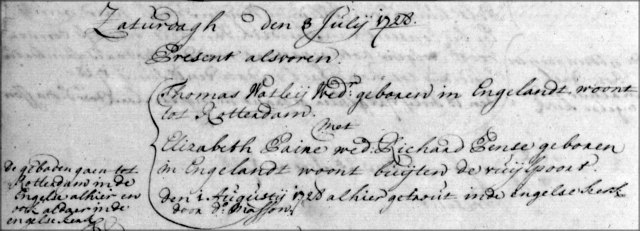 Zaturdagh den 3 Julij 1728.
Present alsvoren.
Thomas Watleij Wedr. geboren in Engelandt woont
tot Rotterdam.
met
Elizabeth Paine wed: Richard Pense geboren
in Engelandt woont buijten de
den 1 Augustij 1728 alhier getrout in de Engelse kerk
door ds. Masson
De geboden gaen tot
Rotterdam in de
Engelse alhier en
ook aldaer in de
engelse kerk